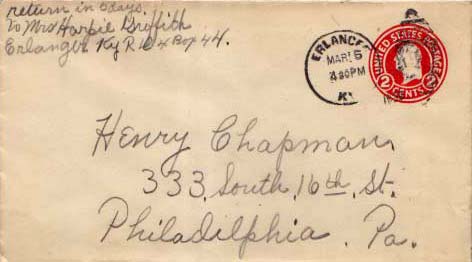 return in 5 days.
To Mrs Harpie Griffith
Erlanger Ky R.D. 4 Box 44.
ERLANGER
MAR 5
4 30PM
KY.
UNITED STATES POSTAGE
2 CENTS 2
Henry Chapman
333. South, 16th, St.
Philadilphia. Pa.